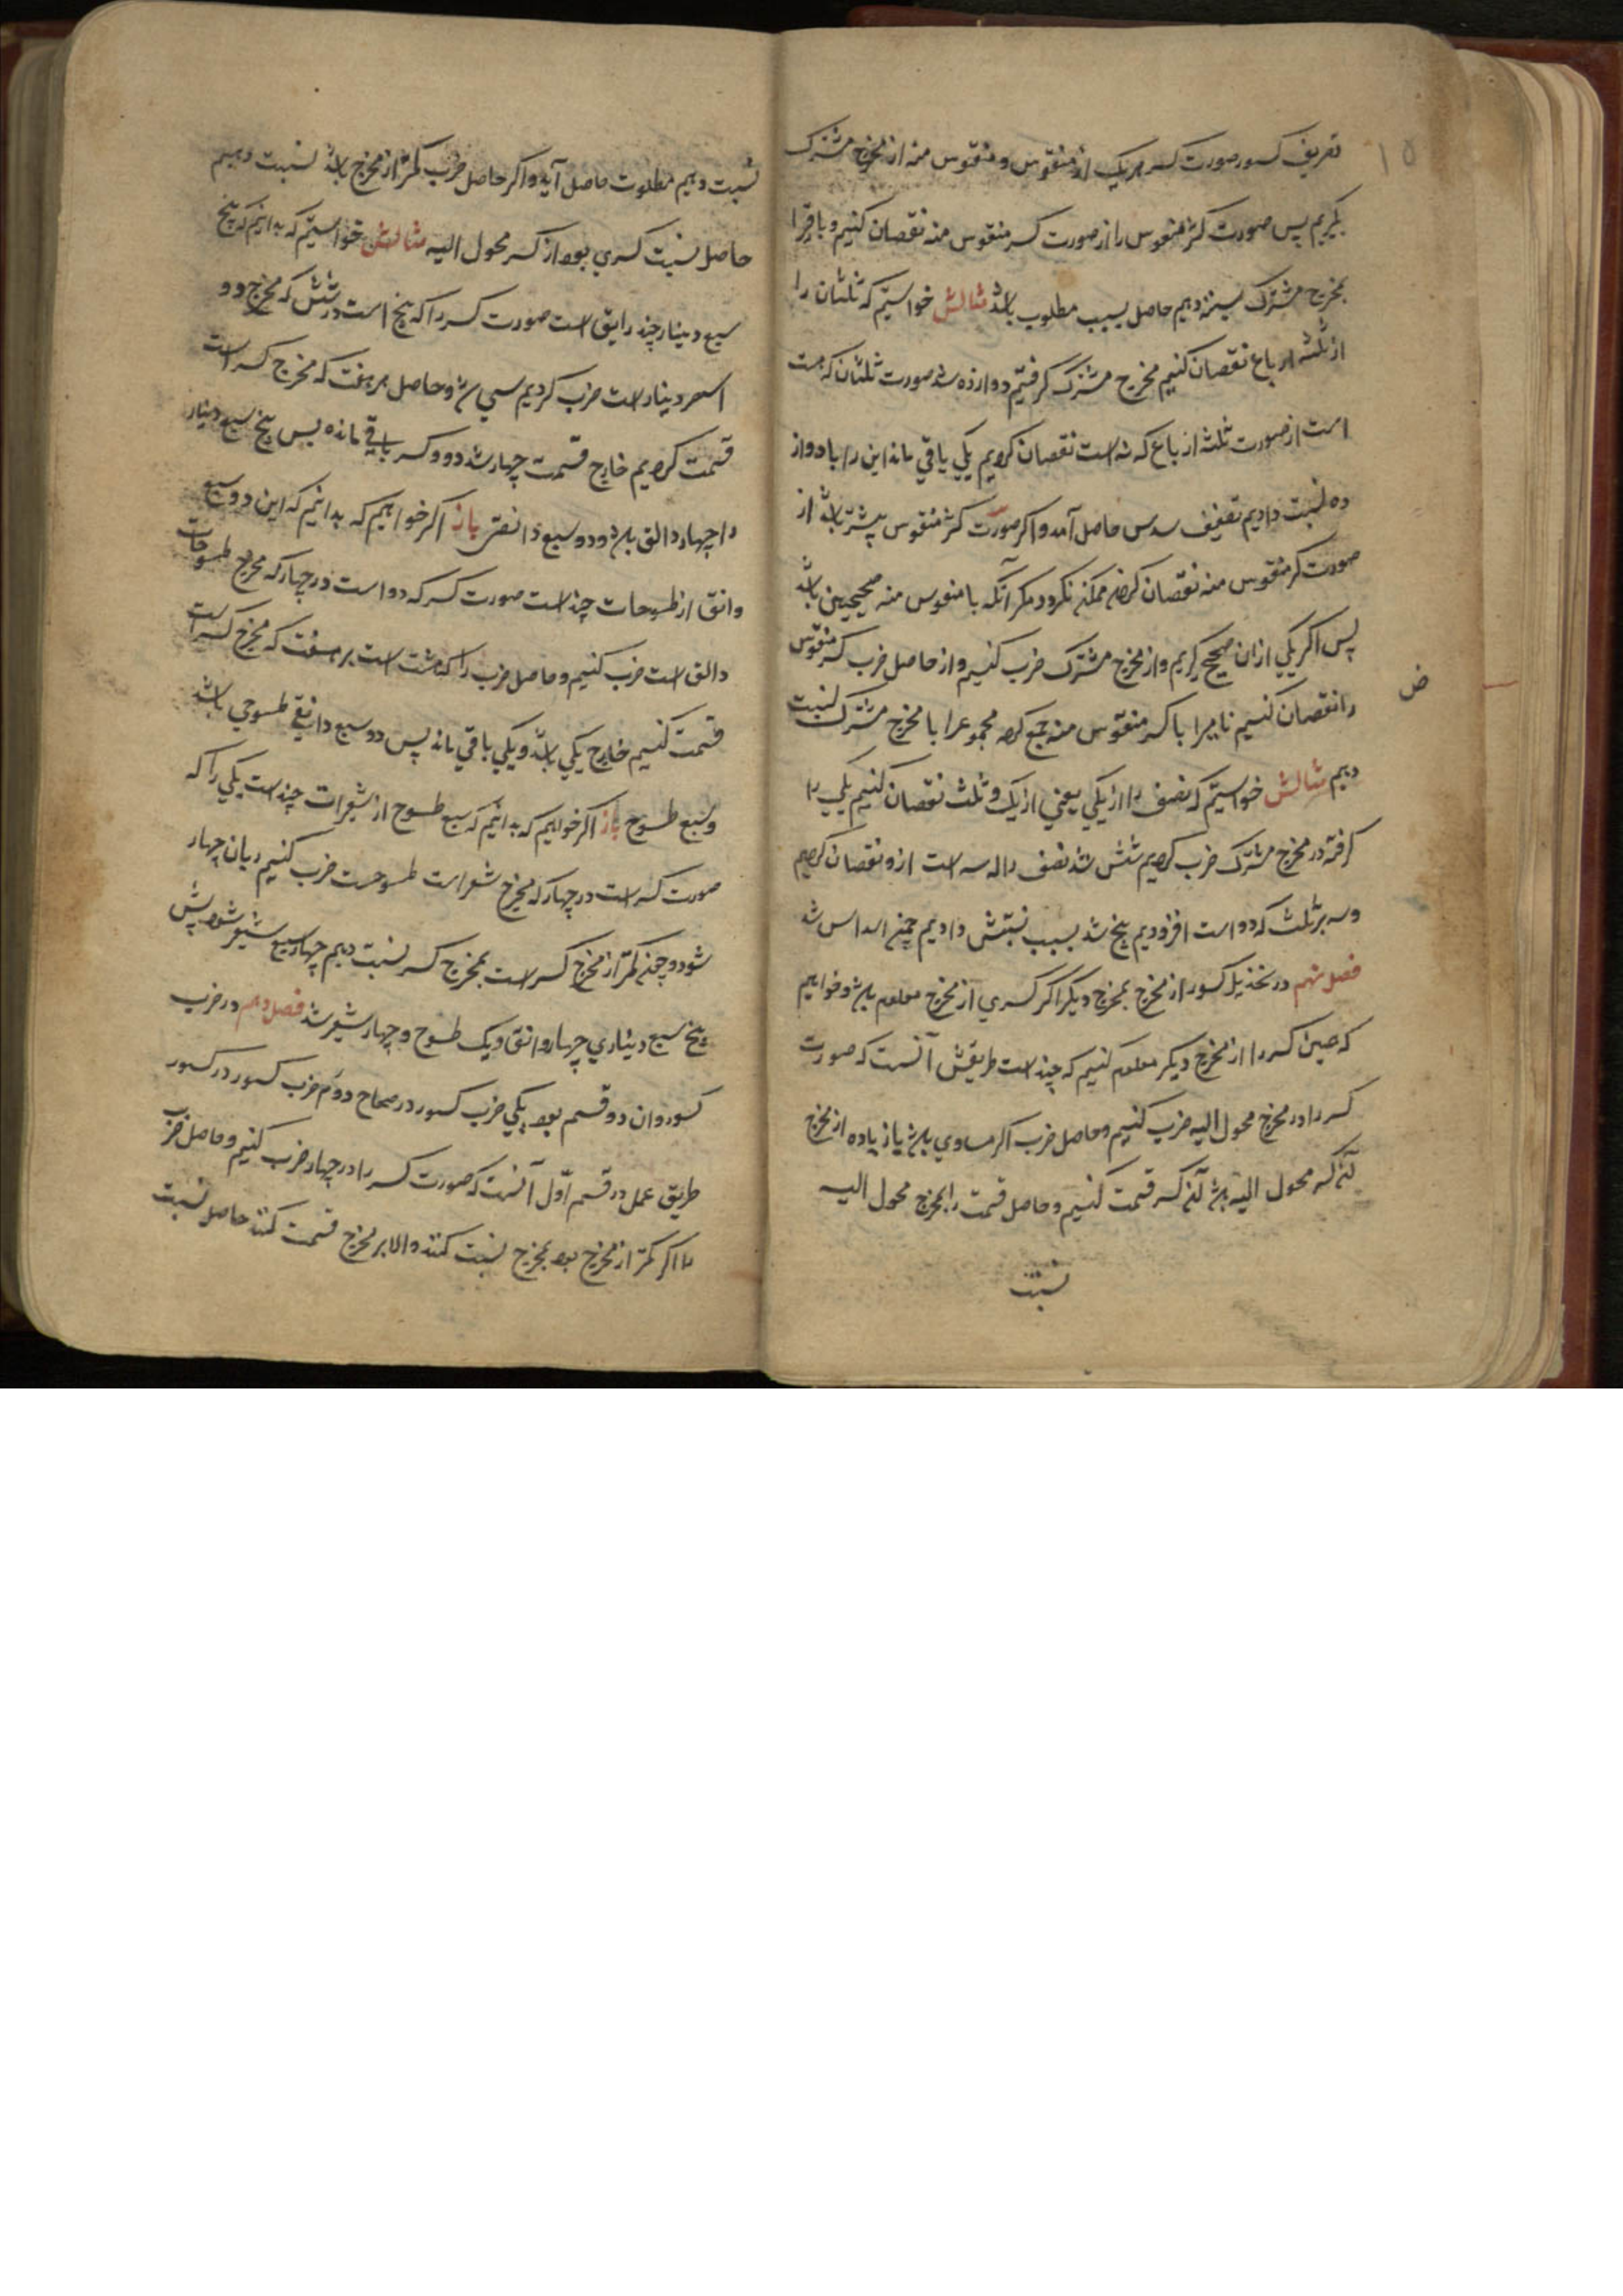 ۱۵
تعریف کسور صورت کسر هر یک از منقوص و منقوص منه از مخرج مشترک
بگیریم پس صورت کسر منقوص را از صورت کسر منقوص منه نقصان کنیم و باقی را
بمخرج مشترک نسبت دهیم حاصل نسبت مطلوب باشد مثالش خواستیم که ثلثان را
از ثلثه ارباع نقصان کنیم مخرج مشترک گرفتیم دوازده شد صورت ثلثان که هشت
است از صورت ثلثه ارباع که نه است نقصان کردیم یکی باقی ماند این را با دواز
ده نسبت دادیم نصف سدس حاصل آمد و اگر صورت کسر منقوص بیشتر باشد از
صورت کسر منقوص منه نقصان کردن ممکن نگردد مگر آنکه با منقوص منه صحیحین باشد
پس اگر یکی ازان صحیح گیریم و از مخرج مشترک ضرب کنیم و از حاصل ضرب کسر منقوص
ض
را نقصان کنیم تا میرا با کسر منقوس منه جمع کرده مجموع را با مخرج مشترک نسبت
دهیم مثالش خواستیم که نصف را از یکی یعنی از یک و ثلث نقصان کنیم یکی را
گرفته در مخرج مشترک ضرب کردیم شش شد نصف را که سه است ازو نقصان کردیم
و سه بر ثلث که دو است افزودیم پنج شد بسبب نسبتش دادیم خمسة اسداس شد
فصل نهم در تحذیل کسور از مخرج بمخرج دیگر اگر کسری از مخرج معلوم باشد و خواهیم
که عین کسر را از مخرج دیگر معلوم کنیم که چند است طریقش آنست که صورت
کسر را در مخرج محول الیه ضرب کنیم و حاصل ضرب اگر مساوی باشد یا زیاده از مخرج
کسر محول الیه باشد کسر قسمت کنیم و حاصل قسمت را بمخرج محول الیه
نسبت
نسبت دهیم مطلوب حاصل آید و اگر حاصل ضرب کمتر از مخرج باشد نسبت دهیم
حاصل نسبت کسری بود از کسر محول الیه مثالش خواستیم که بدانیم که پنج
سبع دینار چند دانق است صورت کسر را که پنج است در شش که مخرج دو
اسهر دینار است ضرب کردیم سی شد و حاصل بر هفت که مخرج کسر است
قسمت کردیم خارج قسمت چهار شد دو و کسر باقی مانده پس پنج سبع دینار
را چهار دانق باشد و دو سبع دانقی باز اگر خواهیم که بدانیم که این دو سبع
دانق از طسوجات چند است صورت کسر که دو است در چهار که مخرج طسوجات
دانق است ضرب کنیم و حاصل ضرب را که هشت است بر هفت که مخرج کسر است
قسمت کنیم خارج یکی باشد و یکی باقی ماند پس دو سبع دانقی طسوجی باشد
و سبع طسوج باز اگر خواهیم که بدانیم که سبع طسوج از شعیرات چند است یکی را که
صورت کسر است در چهار که مخرج شعر است طسوجست ضرب کنیم همان چهار
شود و چون کمتر از مخرج کسر است بمخرج کسر نسبت دهیم چهار سبع شعیر شود پس
پنج سبع دیناری چهار دانق و یک طسوج و چهار شعیر شد فصل دهم در ضرب
کسور و ان دو قسم بود یکی ضرب کسور در صحاح دوم ضرب کسور در کسور
طریق عمل در قسم اول آنست که صورت کسر را در چهار ضرب کنیم و حاصل ضرب
را اگر کمتر از مخرج بود بمخرج نسبت کنند و الا بر مخرج قسمت کنند حاصل نسبت